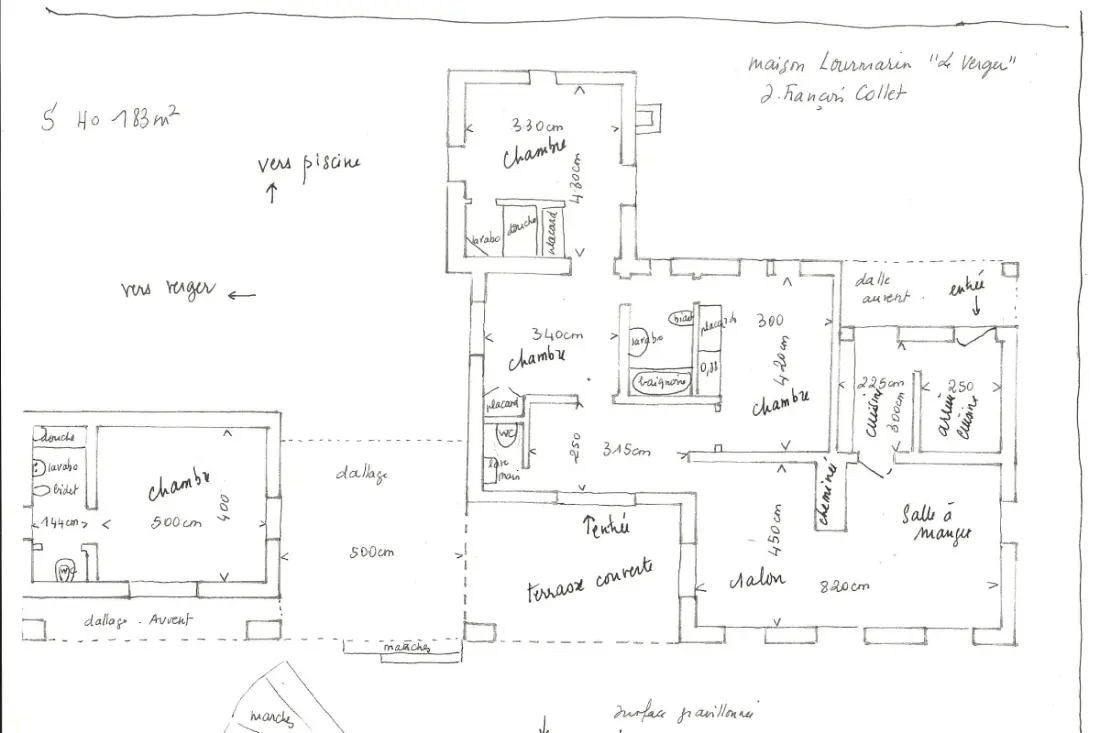 maison Lourmarin "Le Verger"
J. François Collet
S H° 183 m²
vers piscine
↑
vers verger ←
330cm
chambre
480cm
lavabo
douche
placard
dalle
auvent.
entrée
↓
340cm
chambre
bidet
lavabo
baignoire
placards
0,88
300
420cm
chambre
225cm
cuisine
300cm
250
arrière
cuisine
placard
WC
lave
main
250
315cm
cheminée
douche
lavabo
bidet
144cm
WC
chambre
500cm
400
dallage
500cm
↑entrée
terrasse couverte
450cm
salon
820cm
Salle à
manger
dallage . Auvent
marches
marches
surface gravillonnée
↓